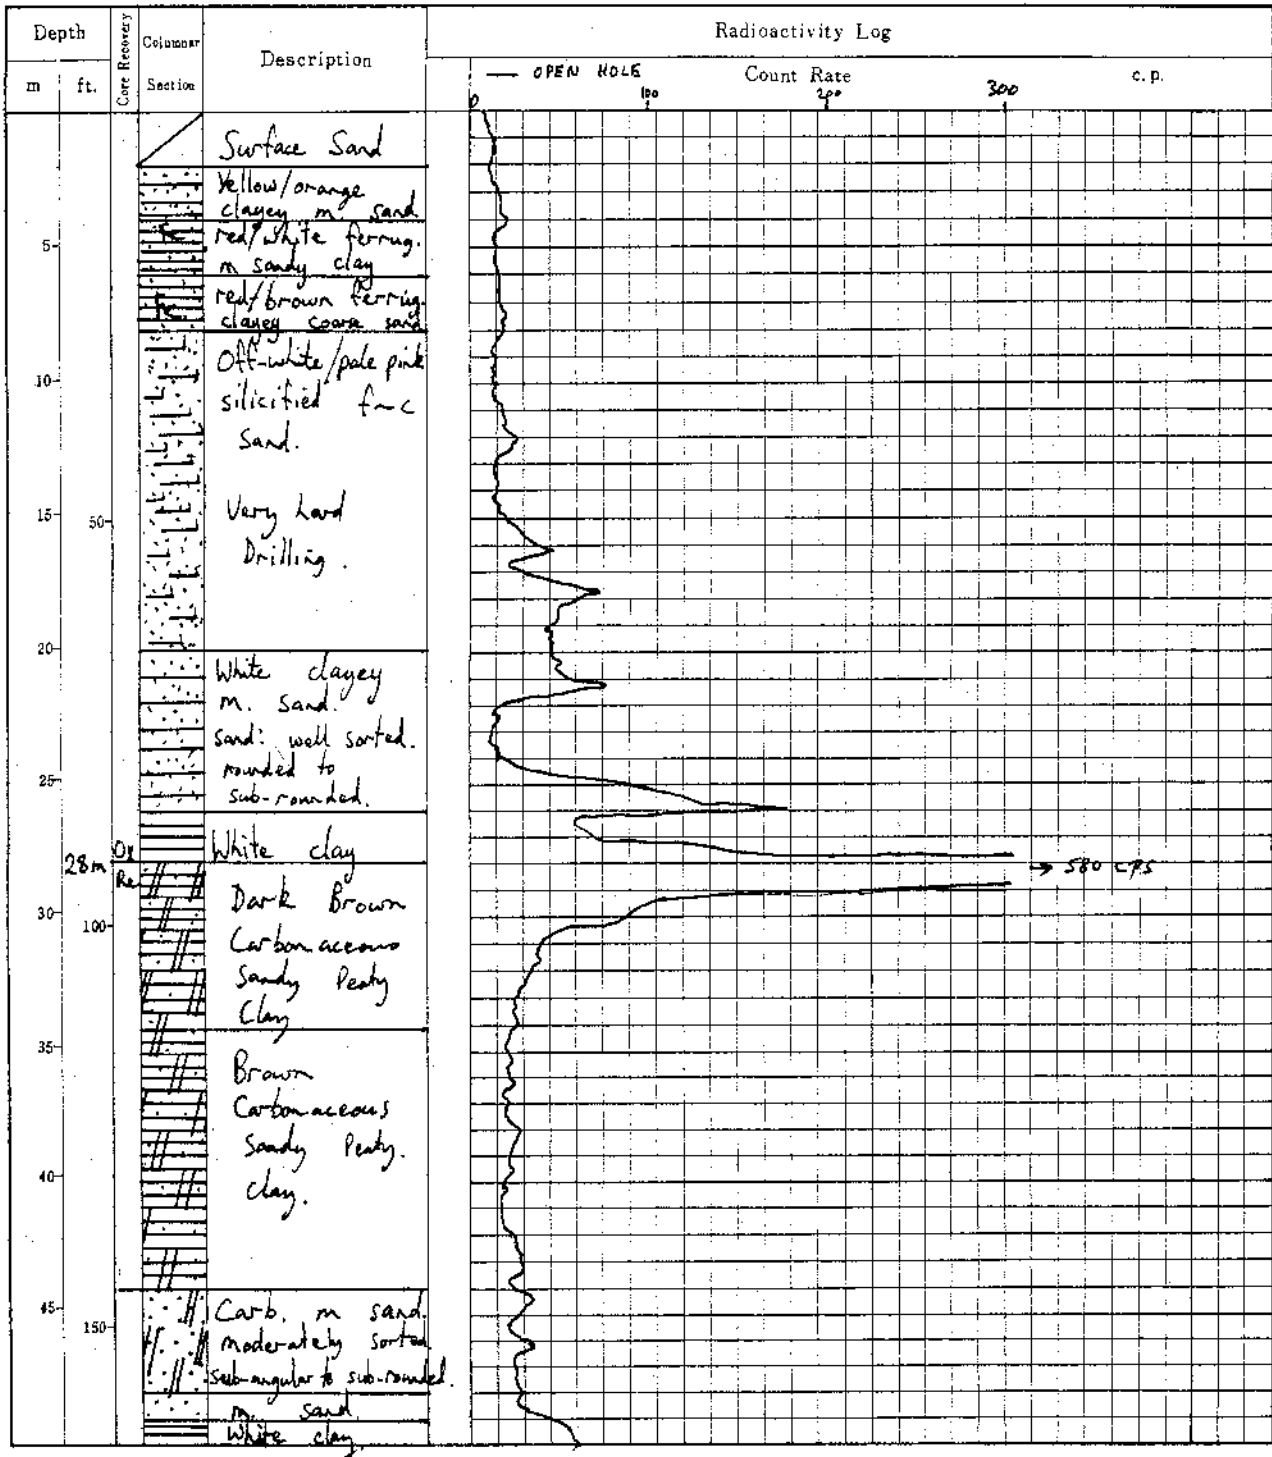 Depth
Core Recovery
Columnar
Section
Description
Radioactivity Log
m
ft.
— OPEN HOLE
Count Rate
c.p.
0
100
200
300
Surface Sand
Yellow/orange
clayey m. sand
red/white ferrug.
m sandy clay
5
red/brown ferrug.
clayey coarse sand
Off-white/pale pink
silicified f-c
Sand.
10
Very hard
Drilling.
15
50
20
White clayey
m. sand.
sand: well sorted.
rounded to
sub-rounded.
25
White clay
Ox
28m
Re
→ 580 CPS
Dark Brown
Carbonaceous
Sandy Peaty
Clay
30
100
35
Brown
Carbonaceous
Sandy Peaty.
Clay.
40
45
150
Carb. m sand.
moderately sorted
sub-angular to sub-rounded.
m. sand
White clay